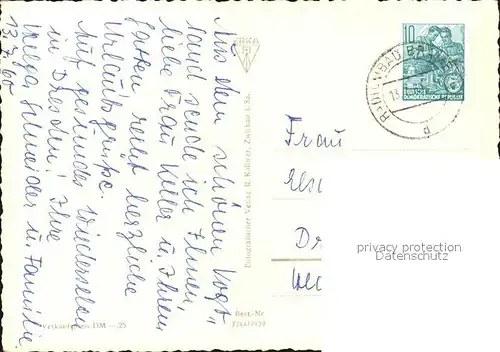 Aus dem schönen Vogt-
land sende ich Ihnen,
liebe Frau Keller u. Ihrem
Gatten recht herzliche
Urlaubsgrüße.
Auf gesundes Wiedersehen
in Dresden! Ihre
Helga Schneider u. Familie
13.7.60
ERKA
Fotografischer Verlag R. Kallmer, Zwickau i. Sa.
Verkaufspreis DM —.25
Best.-Nr.
10
DEUTSCHE
DEMOKRATISCHE REPUBLIK
BAD
13.
d
Frau
Dr
privacy protection
watermark